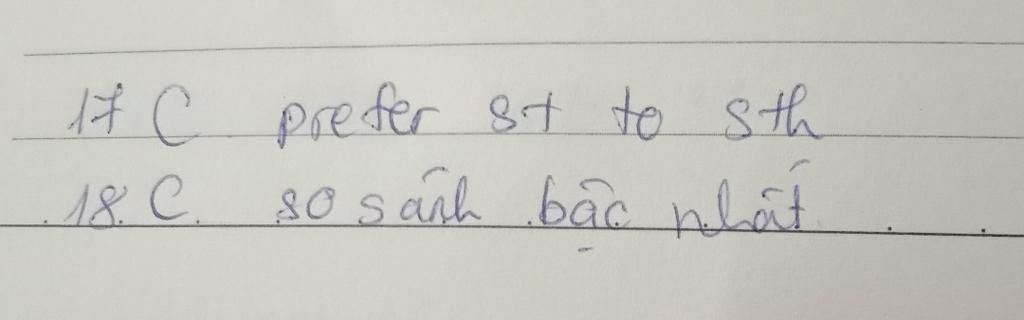 17 C prefer st to sth
18. C. so sánh bậc nhất